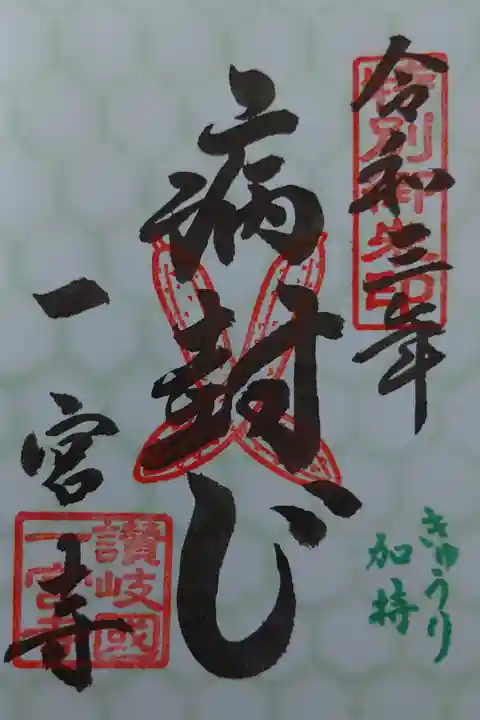 特別御朱印
令和三年
病封じ
きゅうり
加持
一宮寺
讃岐國
一宮寺